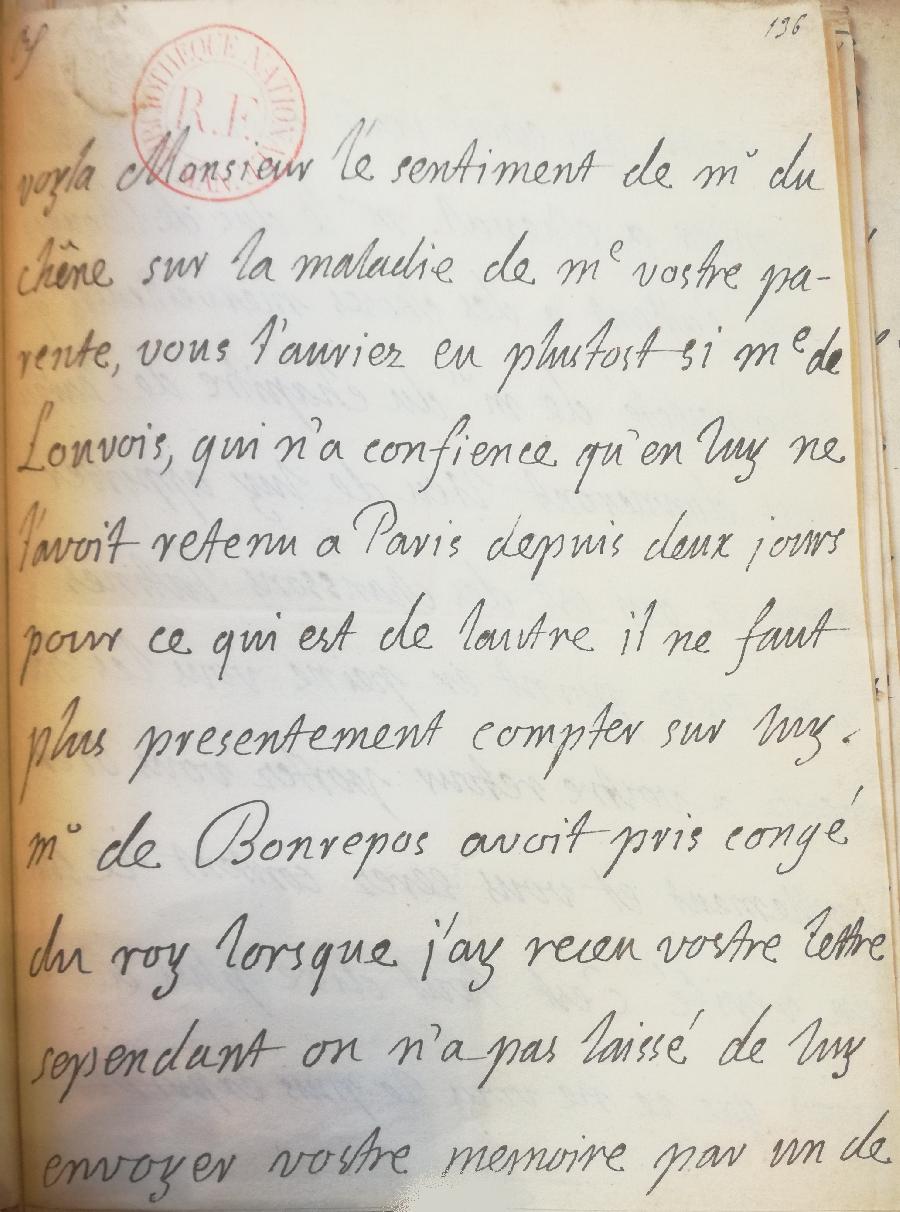 136
BIBLIOTHEQUE NATIONALE
R.F.
MAN
voyla Monsieur le sentiment de mr du
chêne sur la maladie de me vostre pa-
rente, vous l'auriez eu plustost si me de
Louvois, qui n'a confience qu'en luy ne
l'avoit retenu a Paris depuis deux jours
pour ce qui est de lautre il ne faut
plus presentement compter sur luy.
mr de Bonrepos avoit pris congé
du roy lorsque j'ay receu vostre lettre
sependant on n'a pas laissé de luy
envoyer vostre memoire par un de